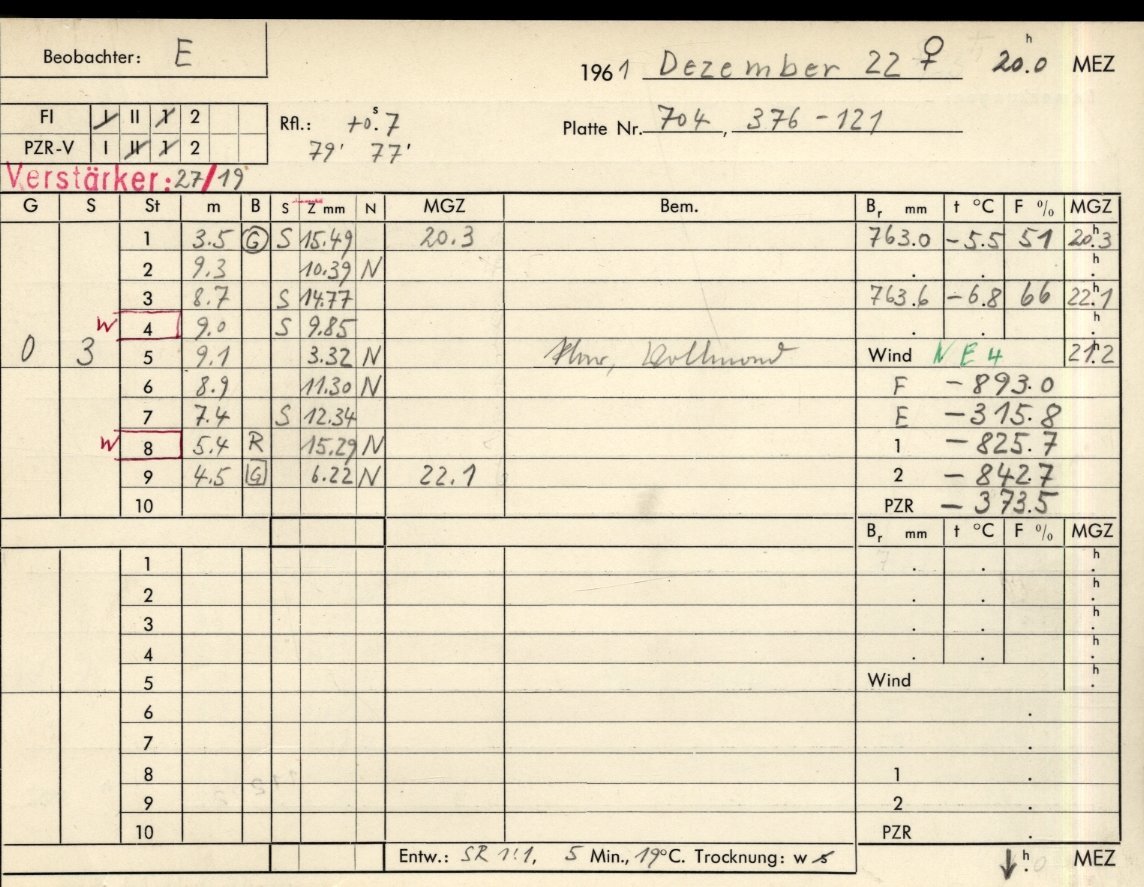 Beobachter: E
1961 Dezember 22 ♀ 20.0 h MEZ
FI I II 1 2
PZR-V I II 1 2
Rfl.: +0.7 s
79' 77'
Platte Nr. 704, 376-121
Verstärker: 27/19
G S St m B S Z mm N MGZ Bem. Br mm t °C F % MGZ
1 3.5 G S 15.49 20.3 763.0 -5.5 51 20.3 h
2 9.3 10.39 N . . . h
3 8.7 S 14.77 763.6 -6.8 66 22.1 h
W 4 9.0 S 9.85 . . . h
0 3 5 9.1 3.32 N Vollmond Wind NE4 21.2 h
6 8.9 11.30 N F -893.0
7 7.4 S 12.34 E -315.8
W 8 5.4 R 15.29 N 1 -825.7
9 4.5 G 6.22 N 22.1 2 -842.7
10 PZR -373.5
Br mm t °C F % MGZ
1 . . . h
2 . . . h
3 . . . h
4 . . . h
5 Wind . h
6 .
7 .
8 1 .
9 2 .
10 PZR .
Entw.: SR 1:1, 5 Min., 19°C. Trocknung: w s
↓ h . MEZ